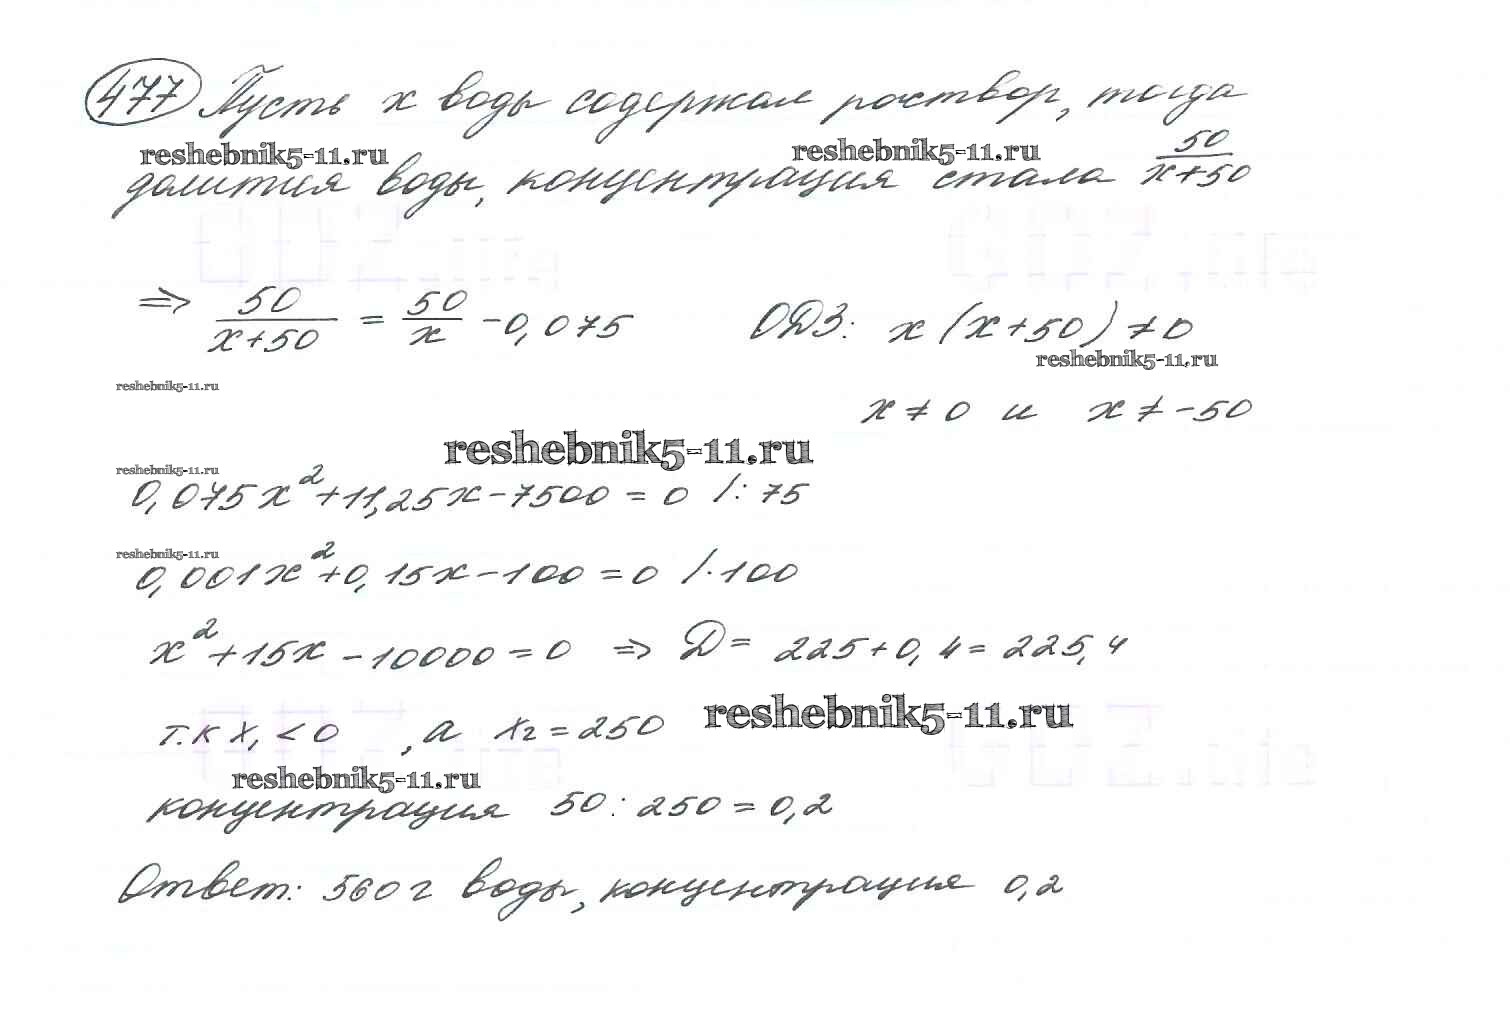 477 Пусть x воды содержал раствор, тогда
reshebnik5-11.ru reshebnik5-11.ru
долития воды, концентрация стала 50/(x+50)
GDZ.life GDZ.life
⇒ 50/(x+50) = 50/x - 0,075 ОДЗ: x(x+50) ≠ 0
reshebnik5-11.ru
reshebnik5-11.ru
x ≠ 0 и x ≠ -50
reshebnik5-11.ru
reshebnik5-11.ru
0,075x² + 11,25x - 7500 = 0 /: 75
reshebnik5-11.ru
0,001x² + 0,15x - 100 = 0 /· 100
x² + 15x - 10000 = 0 ⇒ Д = 225 + 0,4 = 225,4
reshebnik5-11.ru
т.к x₁ < 0, а x₂ = 250
reshebnik5-11.ru
концентрация 50 : 250 = 0,2
Ответ: 560 г воды, концентрация 0,2